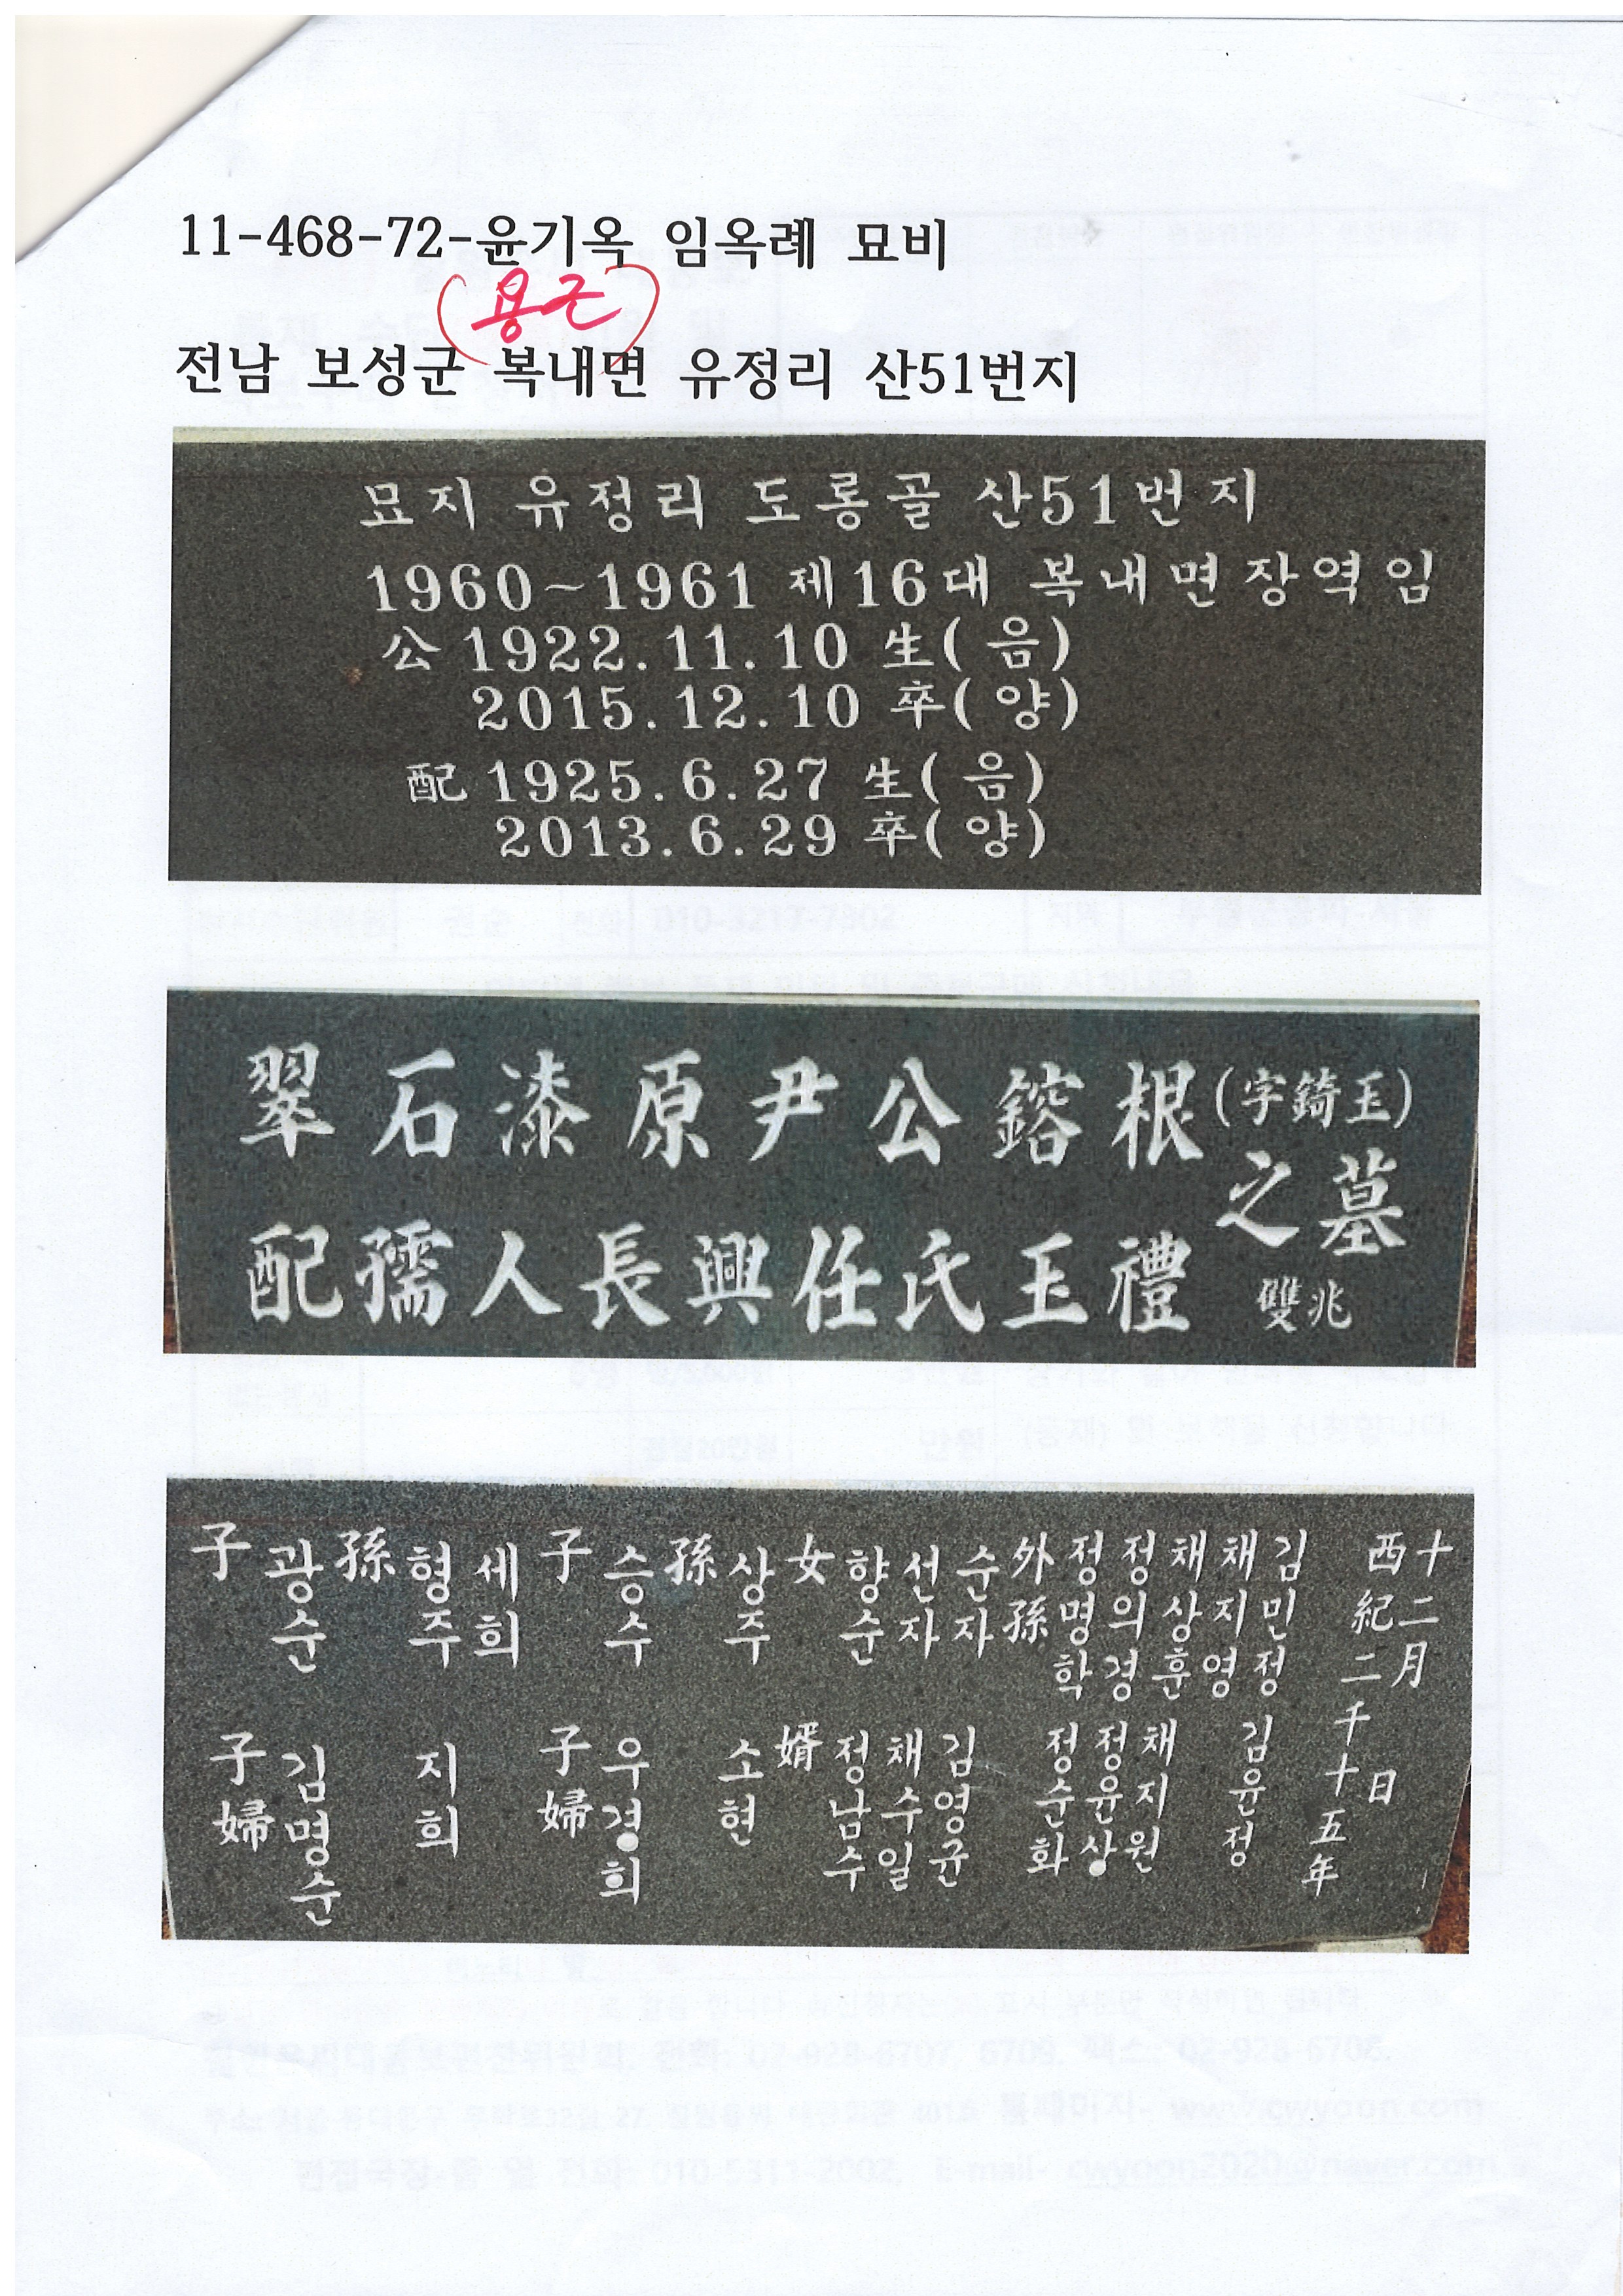 11-468-72-윤기옥 임옥례 묘비
(용근)
전남 보성군 복내면 유정리 산51번지
묘지 유정리 도롱골 산51번지
1960~1961 제16대 복내면장역임
公 1922.11.10 生(음)
2015.12.10 卒(양)
配 1925.6.27 生(음)
2013.6.29 卒(양)
翠石漆原尹公鎔根(字錡玉)
之墓
配孺人長興任氏玉禮
雙兆
子 광순
子婦 김명순
孫 형주 세희
지희
子 승수
子婦 우경희
孫 상주
소현
女 향순 선자 순자
婿 정남수 채수일 김영균
外孫 정명학 정의경 채상훈 채지영 김민정
정순화 정윤상 채지원 김윤정
西紀二千十五年
十二月 日